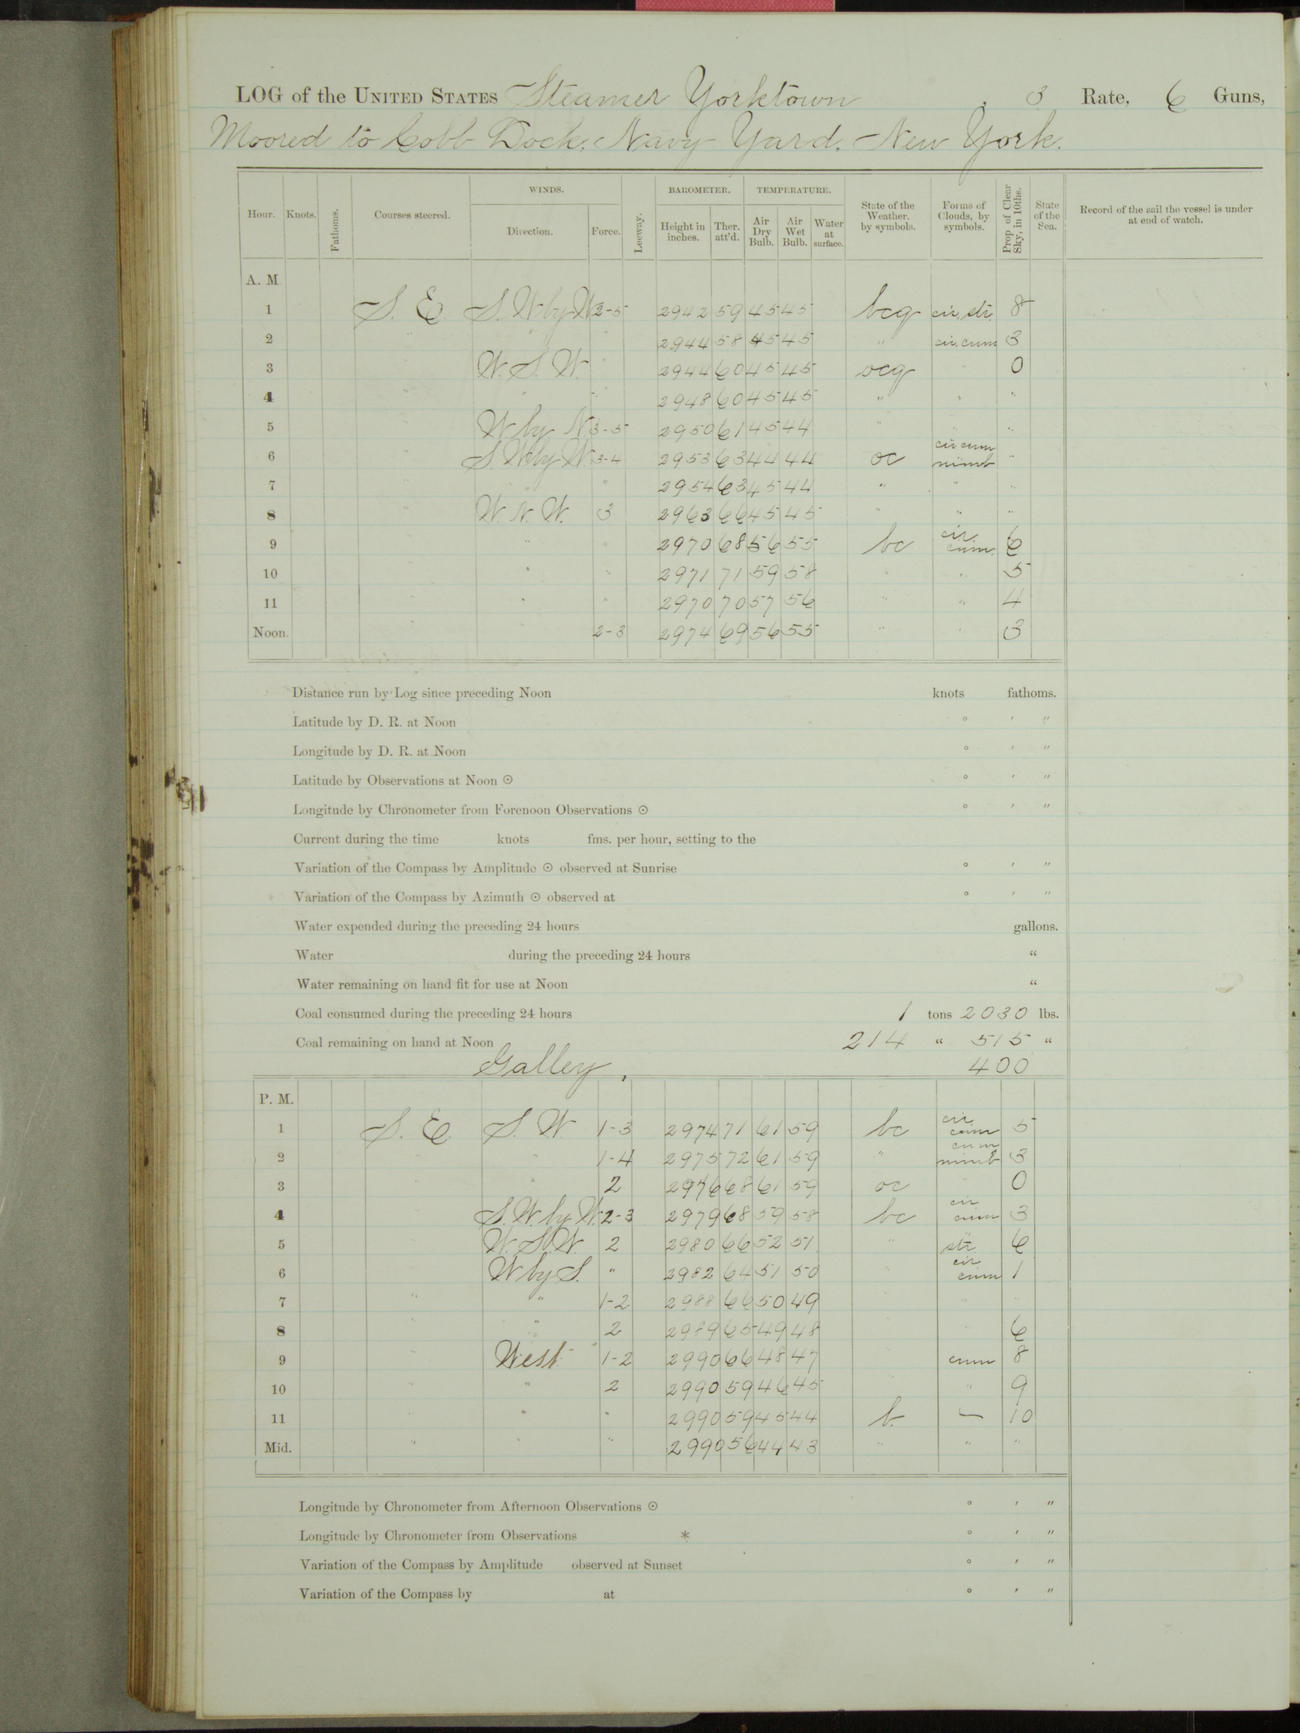 LOG of the UNITED STATES Steamer Yorktown, 3 Rate, 6 Guns,
Moored to Cobb Dock, Navy Yard. New York.
WINDS. BAROMETER. TEMPERATURE.
Hour. Knots. Fathoms. Courses steered. Direction. Force. Leeway. Height in inches. Ther. att'd. Air Dry Bulb. Air Wet Bulb. Water at surface. State of the Weather. by symbols. Forms of Clouds, by symbols. Prop of Clear Sky, in 10ths. State of the Sea. Record of the sail the vessel is under at end of watch.
A. M
1 S. E S. W by W 2-5 2942 59 45 45 bcq cir. str. 8
2 " " 2944 58 45 45 " cir. cum 3
3 W. S. W. " 2944 60 45 45 ocq " 0
4 " " " 2948 60 45 45 " " "
5 W by N 3-5 2950 61 45 44 " " "
6 S W by W 3-4 2953 63 44 44 oc cir cum nimb "
7 " " 2954 63 45 44 " " "
8 W. N. W. 3 2963 66 45 45 " " "
9 " " 2970 68 56 55 bc cir. cum. 6
10 " " 2971 71 59 58 " " 5
11 " " 2970 70 57 56 " " 4
Noon. " " 2-3 2974 69 56 55 " " 3
Distance run by Log since preceding Noon knots fathoms.
Latitude by D. R. at Noon ° ′ ″
Longitude by D. R. at Noon ° ′ ″
Latitude by Observations at Noon ☉ ° ′ ″
Longitude by Chronometer from Forenoon Observations ☉ ° ′ ″
Current during the time knots fms. per hour, setting to the
Variation of the Compass by Amplitude ☉ observed at Sunrise ° ′ ″
Variation of the Compass by Azimuth ☉ observed at ° ′ ″
Water expended during the preceding 24 hours gallons.
Water during the preceding 24 hours “
Water remaining on hand fit for use at Noon “
Coal consumed during the preceding 24 hours 1 tons 2030 lbs.
Coal remaining on hand at Noon 214 “ 515 “
Galley, 400
P. M.
1 S. E S. W 1-3 2974 71 61 59 bc cir cum 5
2 " " 1-4 2975 72 61 59 " cum nimb 3
3 2 2976 68 61 59 oc " 0
4 S. W. by W. 2-3 2979 68 59 58 bc cir cum 3
5 W. S. W. 2 2980 66 52 51 " str 6
6 W by S. " 2982 64 51 50 " cir cum 1
7 " " 1-2 2988 66 50 49 " " "
8 " 2 2989 65 49 48 " " 6
9 West 1-2 2990 66 48 47 " cum 8
10 " " 2 2990 59 46 45 " " 9
11 " " 2990 59 45 44 b. — 10
Mid. " " " 2990 56 44 43 " " "
Longitude by Chronometer from Afternoon Observations ☉ ° ′ ″
Longitude by Chronometer from Observations * ° ′ ″
Variation of the Compass by Amplitude observed at Sunset ° ′ ″
Variation of the Compass by at ° ′ ″